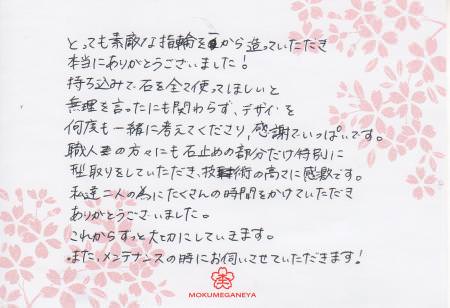 とっても素敵な指輪を一から造っていただき
本当にありがとうございました！
持ち込みで石を全て使ってほしいと
無理を言ったにも関わらず、デザインを
何度も一緒に考えてくださり、感謝でいっぱいです。
職人の方々にも石止めの部分だけ特別に
型取りをしていただき、技術の高さに感激です。
私達二人の為にたくさんの時間をかけていただき
ありがとうございました。
これからずっと大切にしていきます。
また、メンテナンスの時にお伺いさせていただきます！
MOKUMEGANEYA